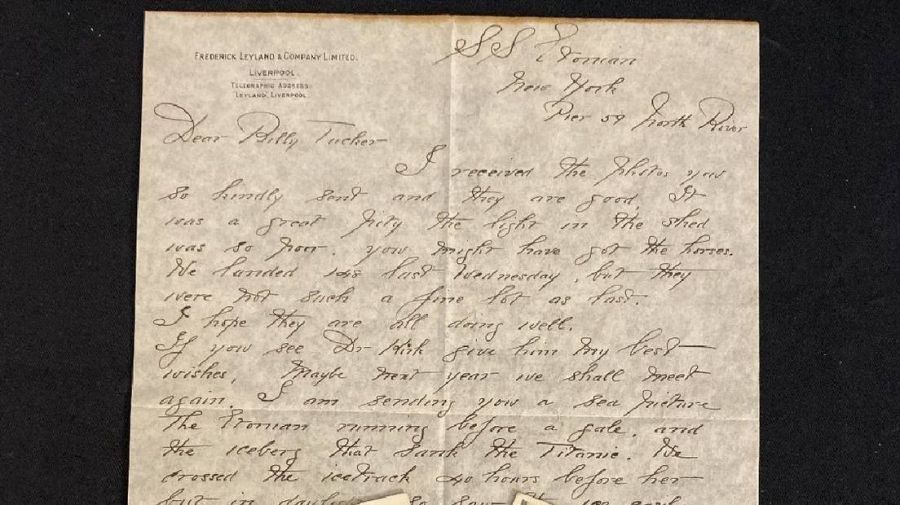 FREDERICK LEYLAND & COMPANY LIMITED.
LIVERPOOL
TELEGRAPHIC ADDRESS:
LEYLAND, LIVERPOOL.
SS Etonian
New York
Pier 59 North River
Dear Billy Tucker
I received the photos you
so kindly sent and they are good. It
was a great pity the light in the shed
was so poor. you might have got the horses.
We landed 148 last Wednesday, but they
were not such a fine lot as last.
I hope they are all doing well.
If you see Dr Kirk give him my best
wishes, Maybe next year we shall meet
again. I am sending you a sea picture
The Etonian running before a gale, and
the iceberg that sank the Titanic. We
crossed the icetrack 40 hours before her
but in daylight so saw the ice easily